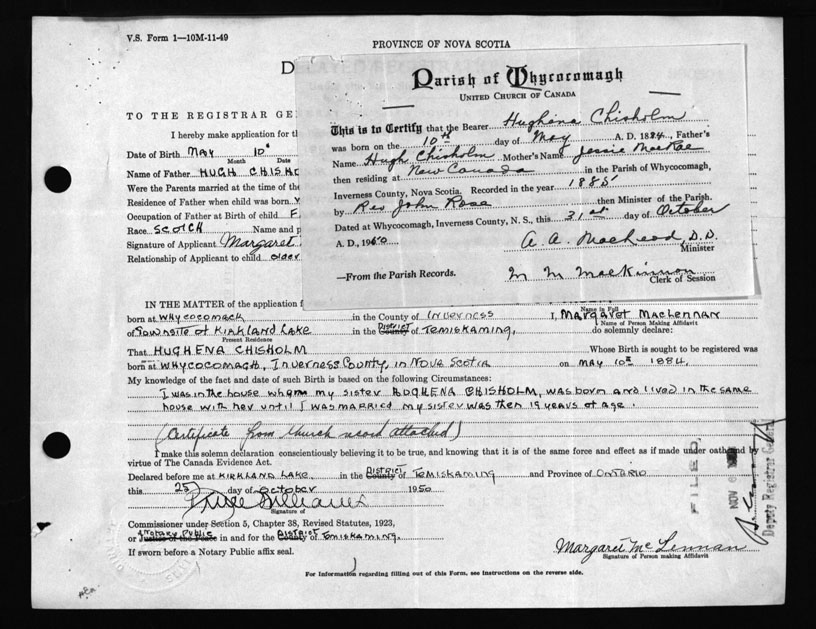 V.S. Form 1—10M-11-49
PROVINCE OF NOVA SCOTIA
D
TO THE REGISTRAR GE
I hereby make application for th
Date of Birth MAY 10
Month Date
Name of Father HUGH CHISHO
Were the Parents married at the time of the
Residence of Father when child was born
Occupation of Father at Birth of child F
Race SCOTCH Name and p
Signature of Applicant Margaret
Relationship of Applicant to child older
Parish of Whycocomagh
UNITED CHURCH OF CANADA
This is to Certify that the Bearer Hughena Chisholm
was born on the 10th day of May A. D. 1884, Father's
Name Hugh Chisholm Mother's Name Jessie MacRae
then residing at New Canada in the Parish of Whycocomagh,
Inverness County, Nova Scotia. Recorded in the year 1885
by Rev John Rose then Minister of the Parish.
Dated at Whycocomagh, Inverness County, N. S., this 31st day of October
A. D., 1950 A. A. MacLeod, D.D.
Minister
—From the Parish Records. M M MacKinnon
Clerk of Session
IN THE MATTER of the application f
Name in Full
born at WHYCOCOMAGH in the County of INVERNESS I, MARGARET MACLENNAN
Name of Person Making Affidavit
of TOWNSITE OF KIRKLAND LAKE in the District County of TEMISKAMING, do solemnly declare:
Present Residence
That HUGHENA CHISHOLM Whose Birth is sought to be registered was
born at WHYCOCOMAGH, INVERNESS COUNTY, IN NOVA SCOTIA on MAY 10th 1884.
My knowledge of the fact and date of such Birth is based on the following Circumstances:
I was in the house when my sister HUGHENA CHISHOLM, was born and lived in the same
house with her until I was married my sister was then 19 years of age.
(Certificate from church attached)
I make this solemn declaration conscientiously believing it to be true, and knowing that it is of the same force and effect as if made under oath and by
virtue of The Canada Evidence Act.
Declared before me at KIRKLAND LAKE, in the District County of TEMISKAMING and Province of ONTARIO
this 25 day of October 1950
Signature of
Commissioner under Section 5, Chapter 38, Revised Statutes, 1923,
or Notary Public Justice of the Peace in and for the District County of TEMISKAMING
If sworn before a Notary Public affix seal.
Margaret McLennan
Signature of Person making Affidavit
For Information regarding filling out of this Form, see Instructions on the reverse side.
FILED
NOV 6
Deputy Registrar General